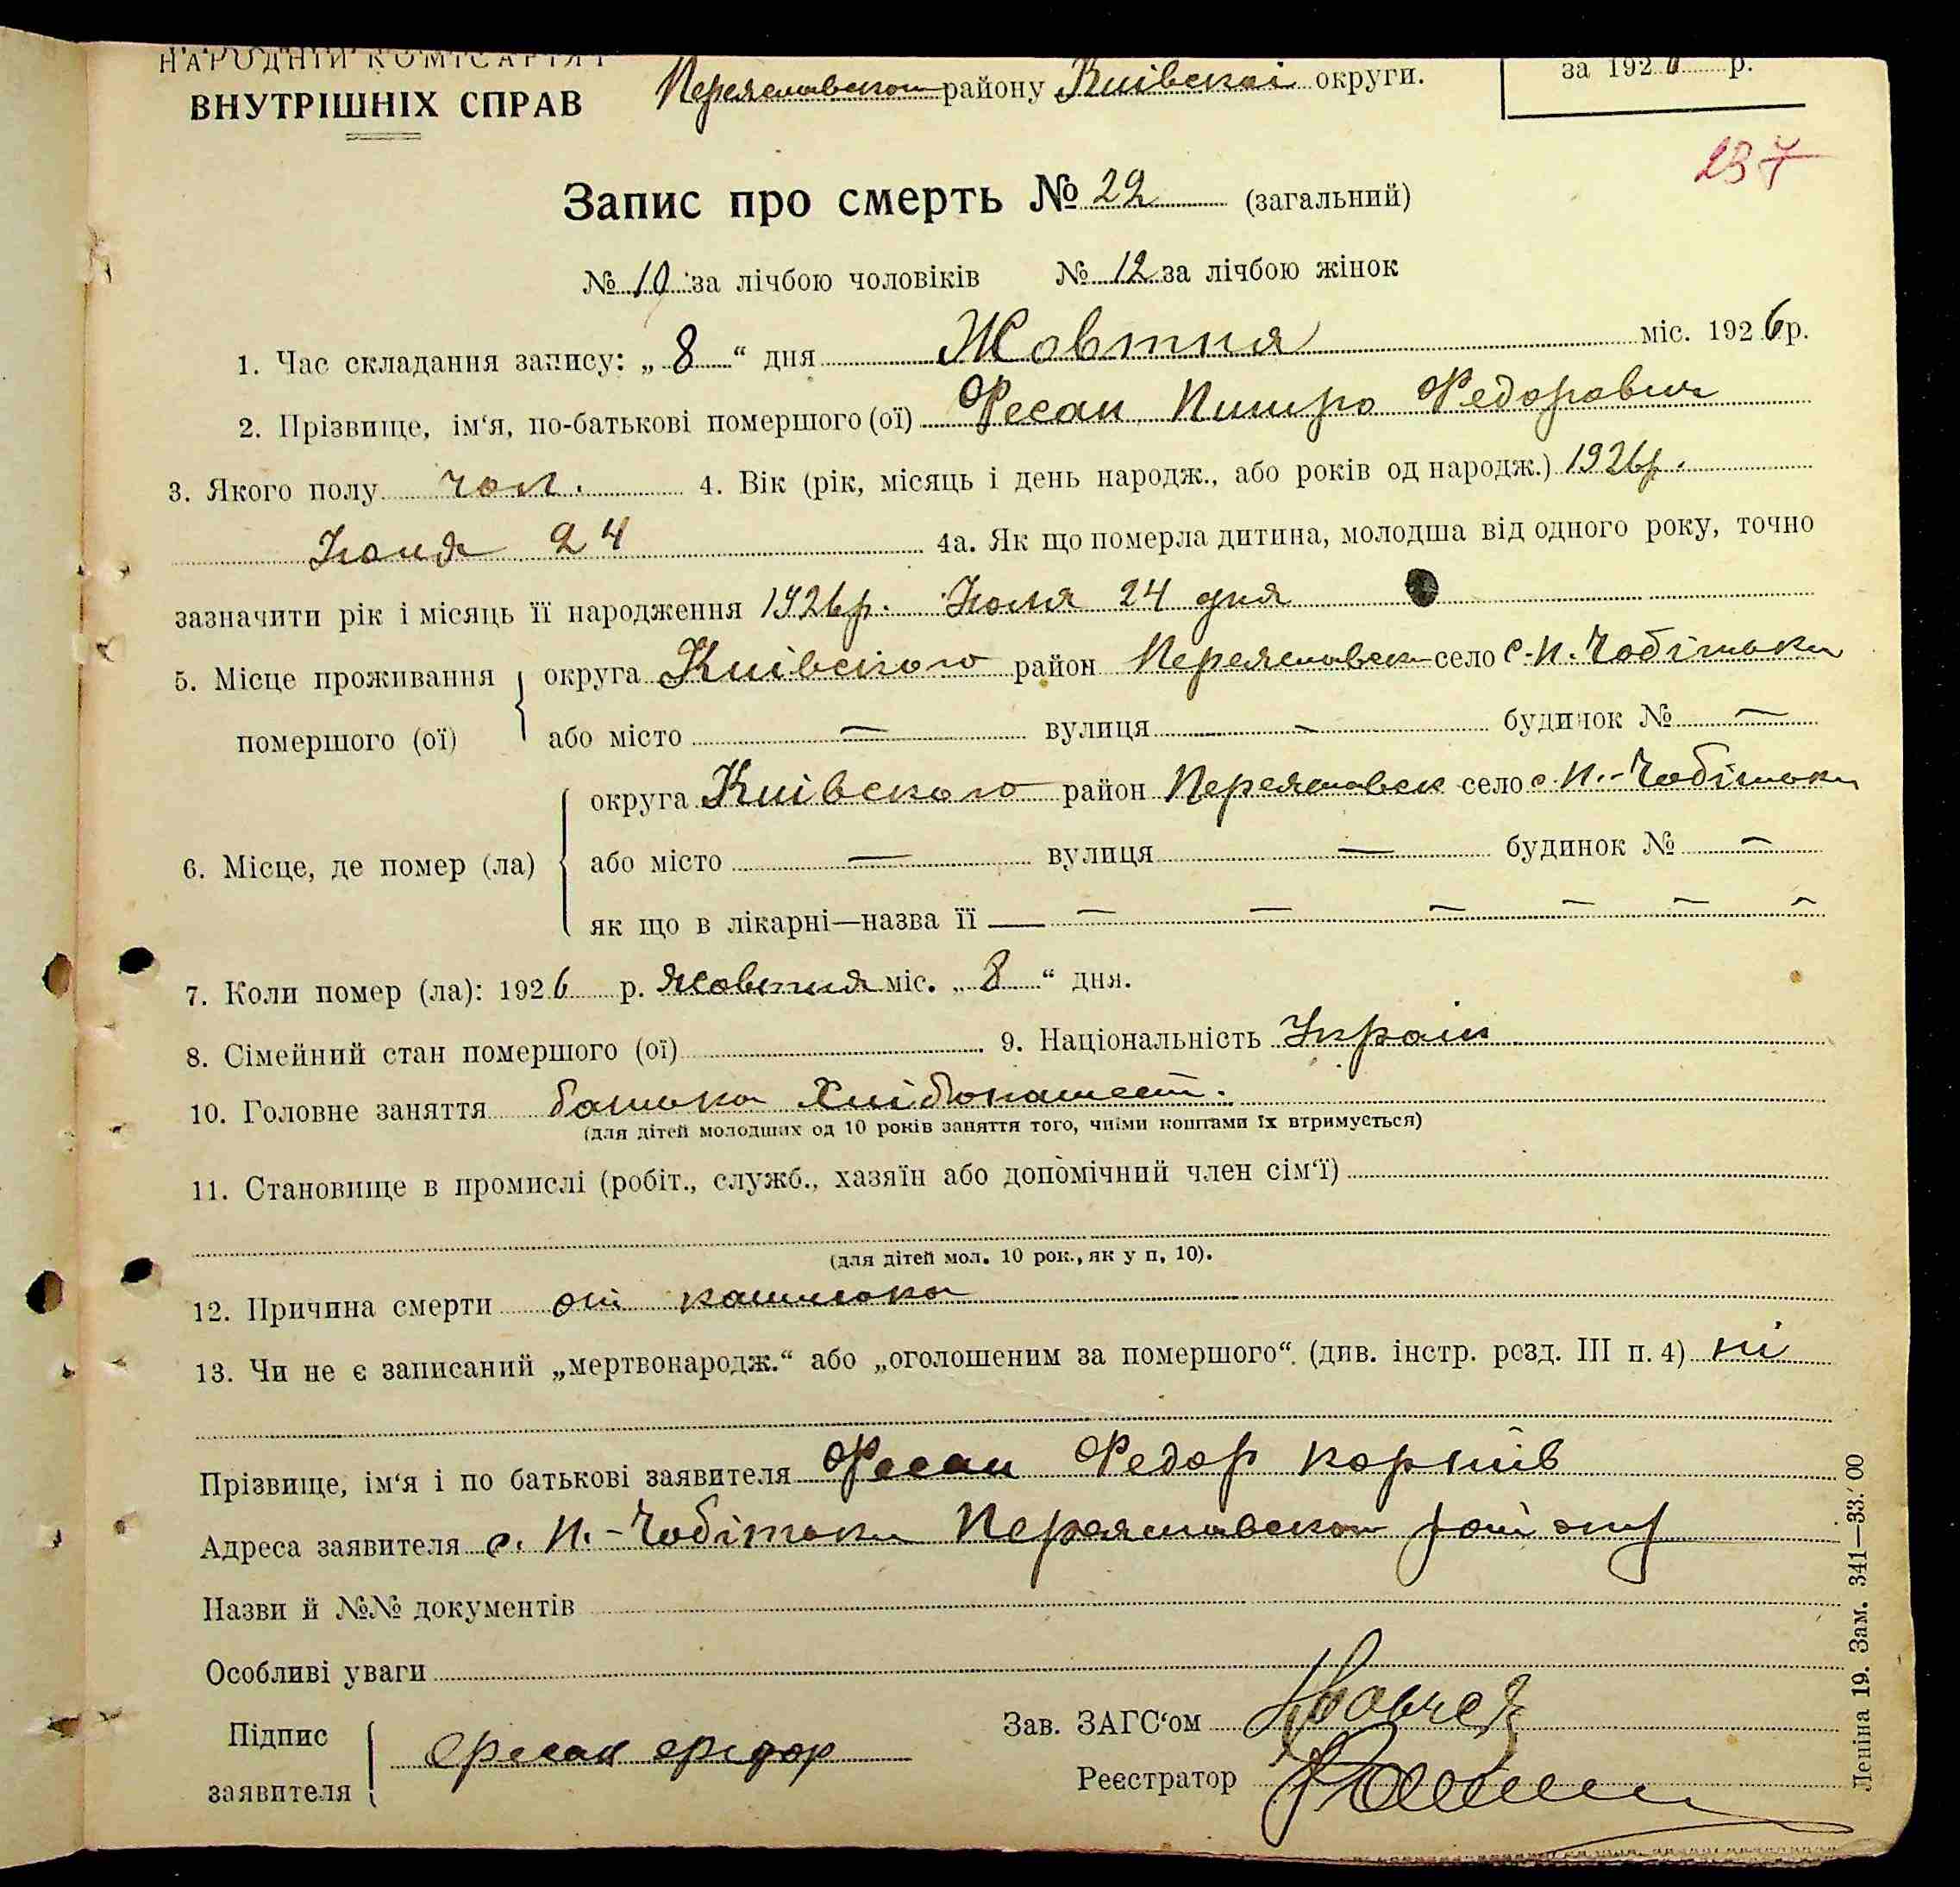 НАРОДНІЙ КОМІСАРІЯТ
ВНУТРІШНІХ СПРАВ
Переяславском району Київскоі округи.
за 1926 р.
237
Запис про смерть № 22 (загальний)
№ 10 за лічбою чоловіків № 12 за лічбою жінок
1. Час складання запису: „ 8 “ дня Жовтня міс. 1926 р.
2. Прізвище, ім‘я, по-батькові помершого (ої) Фесан Пилипо Федорович
3. Якого полу чол. 4. Вік (рік, місяць і день народж., або років од народж.) 1926р.
24 4а. Як що померла дитина, молодша від одного року, точно
зазначити рік і місяць її народження 1926р. Июля 24 дня
5. Місце проживання помершого (ої) округа Київського район Переяславск село с. П. Чобітьки
або місто — вулиця — будинок № —
6. Місце, де помер (ла) округа Київского район Переяславск село с. П.-Чобітьки
або місто — вулиця — будинок № —
як що в лікарні—назва її — — — — — — —
7. Коли помер (ла): 1926 р. Жовтня міс. „ 8 “ дня.
8. Сімейний стан помершого (ої) 9. Національність Україн
10. Головне заняття батька Хлібопашест.
(для дітей молодших од 10 років заняття того, чиїми коштами їх втримується)
11. Становище в промислі (робіт., служб., хазяїн або допомічний член сім‘ї)
(для дітей мол. 10 рок., як у п. 10).
12. Причина смерти от кашлюка
13. Чи не є записаний „мертвонародж.“ або „оголошеним за помершого“. (див. інстр. розд. III п. 4) ні
Прізвище, ім‘я і по батькові заявителя Фесан Федор Корніів
Адреса заявителя с. П.-Чобітьки Переяславском району
Назви й №№ документів
Особливі уваги
Підпис заявителя Фесан Федор
Зав. ЗАГС‘ом
Реєстратор
Леніна 19. Зам. 341—33.´00